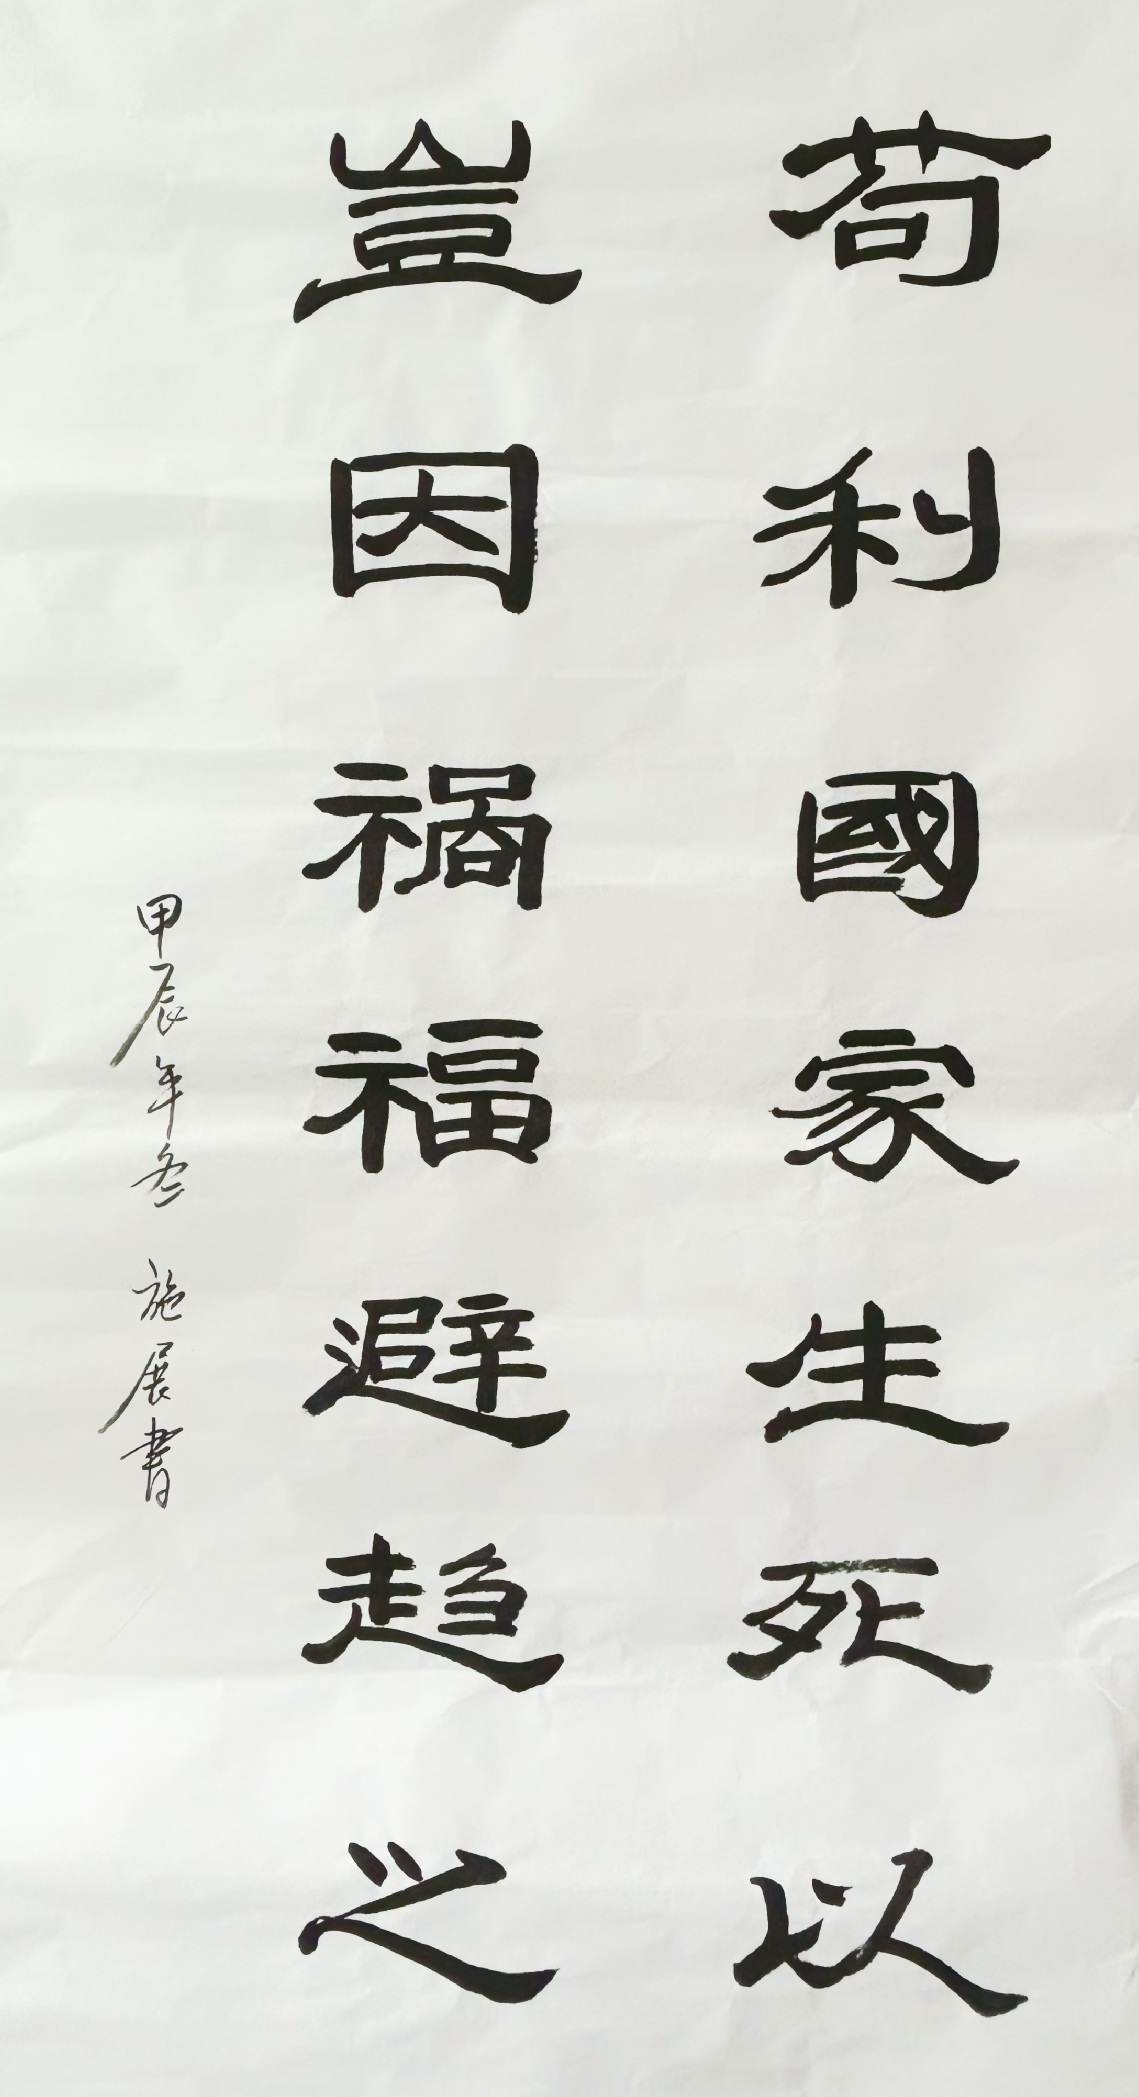 苟利國家生死以
豈因禍福避趋之
甲辰年冬 施展書